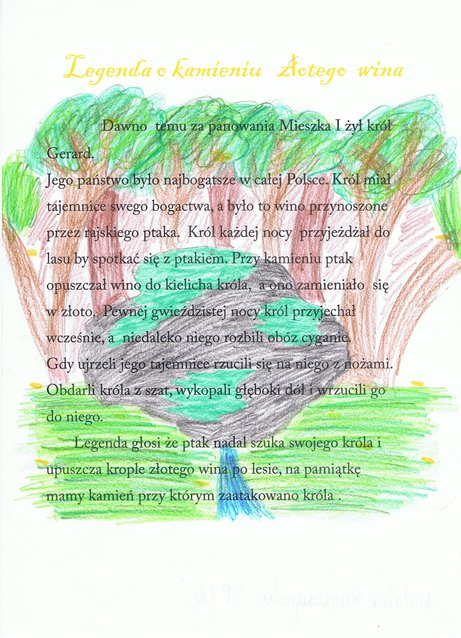 Legenda o kamieniu złotego wina
Dawno temu za panowania Mieszka I żył król
Gerard.
Jego państwo było najbogatsze w całej Polsce. Król miał
tajemnice swego bogactwa, a było to wino przynoszone
przez rajskiego ptaka. Król każdej nocy przyjeżdżał do
lasu by spotkać się z ptakiem. Przy kamieniu ptak
opuszczał wino do kielicha króla, a ono zamieniało się
w złoto. Pewnej gwieździstej nocy król przyjechał
wcześnie, a niedaleko niego rozbili obóz cyganie.
Gdy ujrzeli jego tajemnice rzucili się na niego z nożami.
Obdarli króla z szat, wykopali głęboki dól i wrzucili go
do niego.
Legenda głosi że ptak nadal szuka swojego króla i
upuszcza krople złotego wina po lesie, na pamiątkę
mamy kamień przy którym zaatakowano króla .